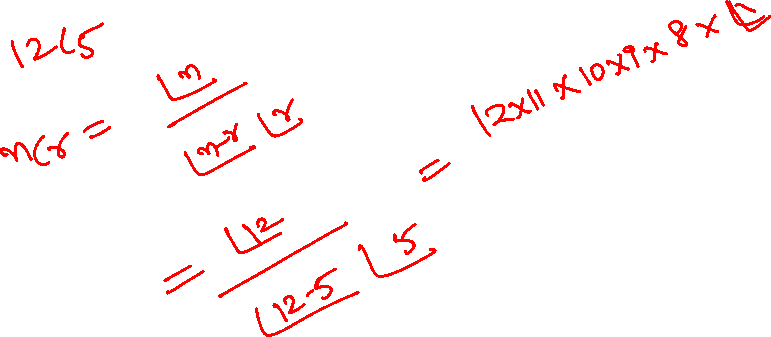 12C5
nCr = ⌊n / ⌊n-r ⌊r
= ⌊12 / ⌊12-5 ⌊5
= 12×11×10×9×8×